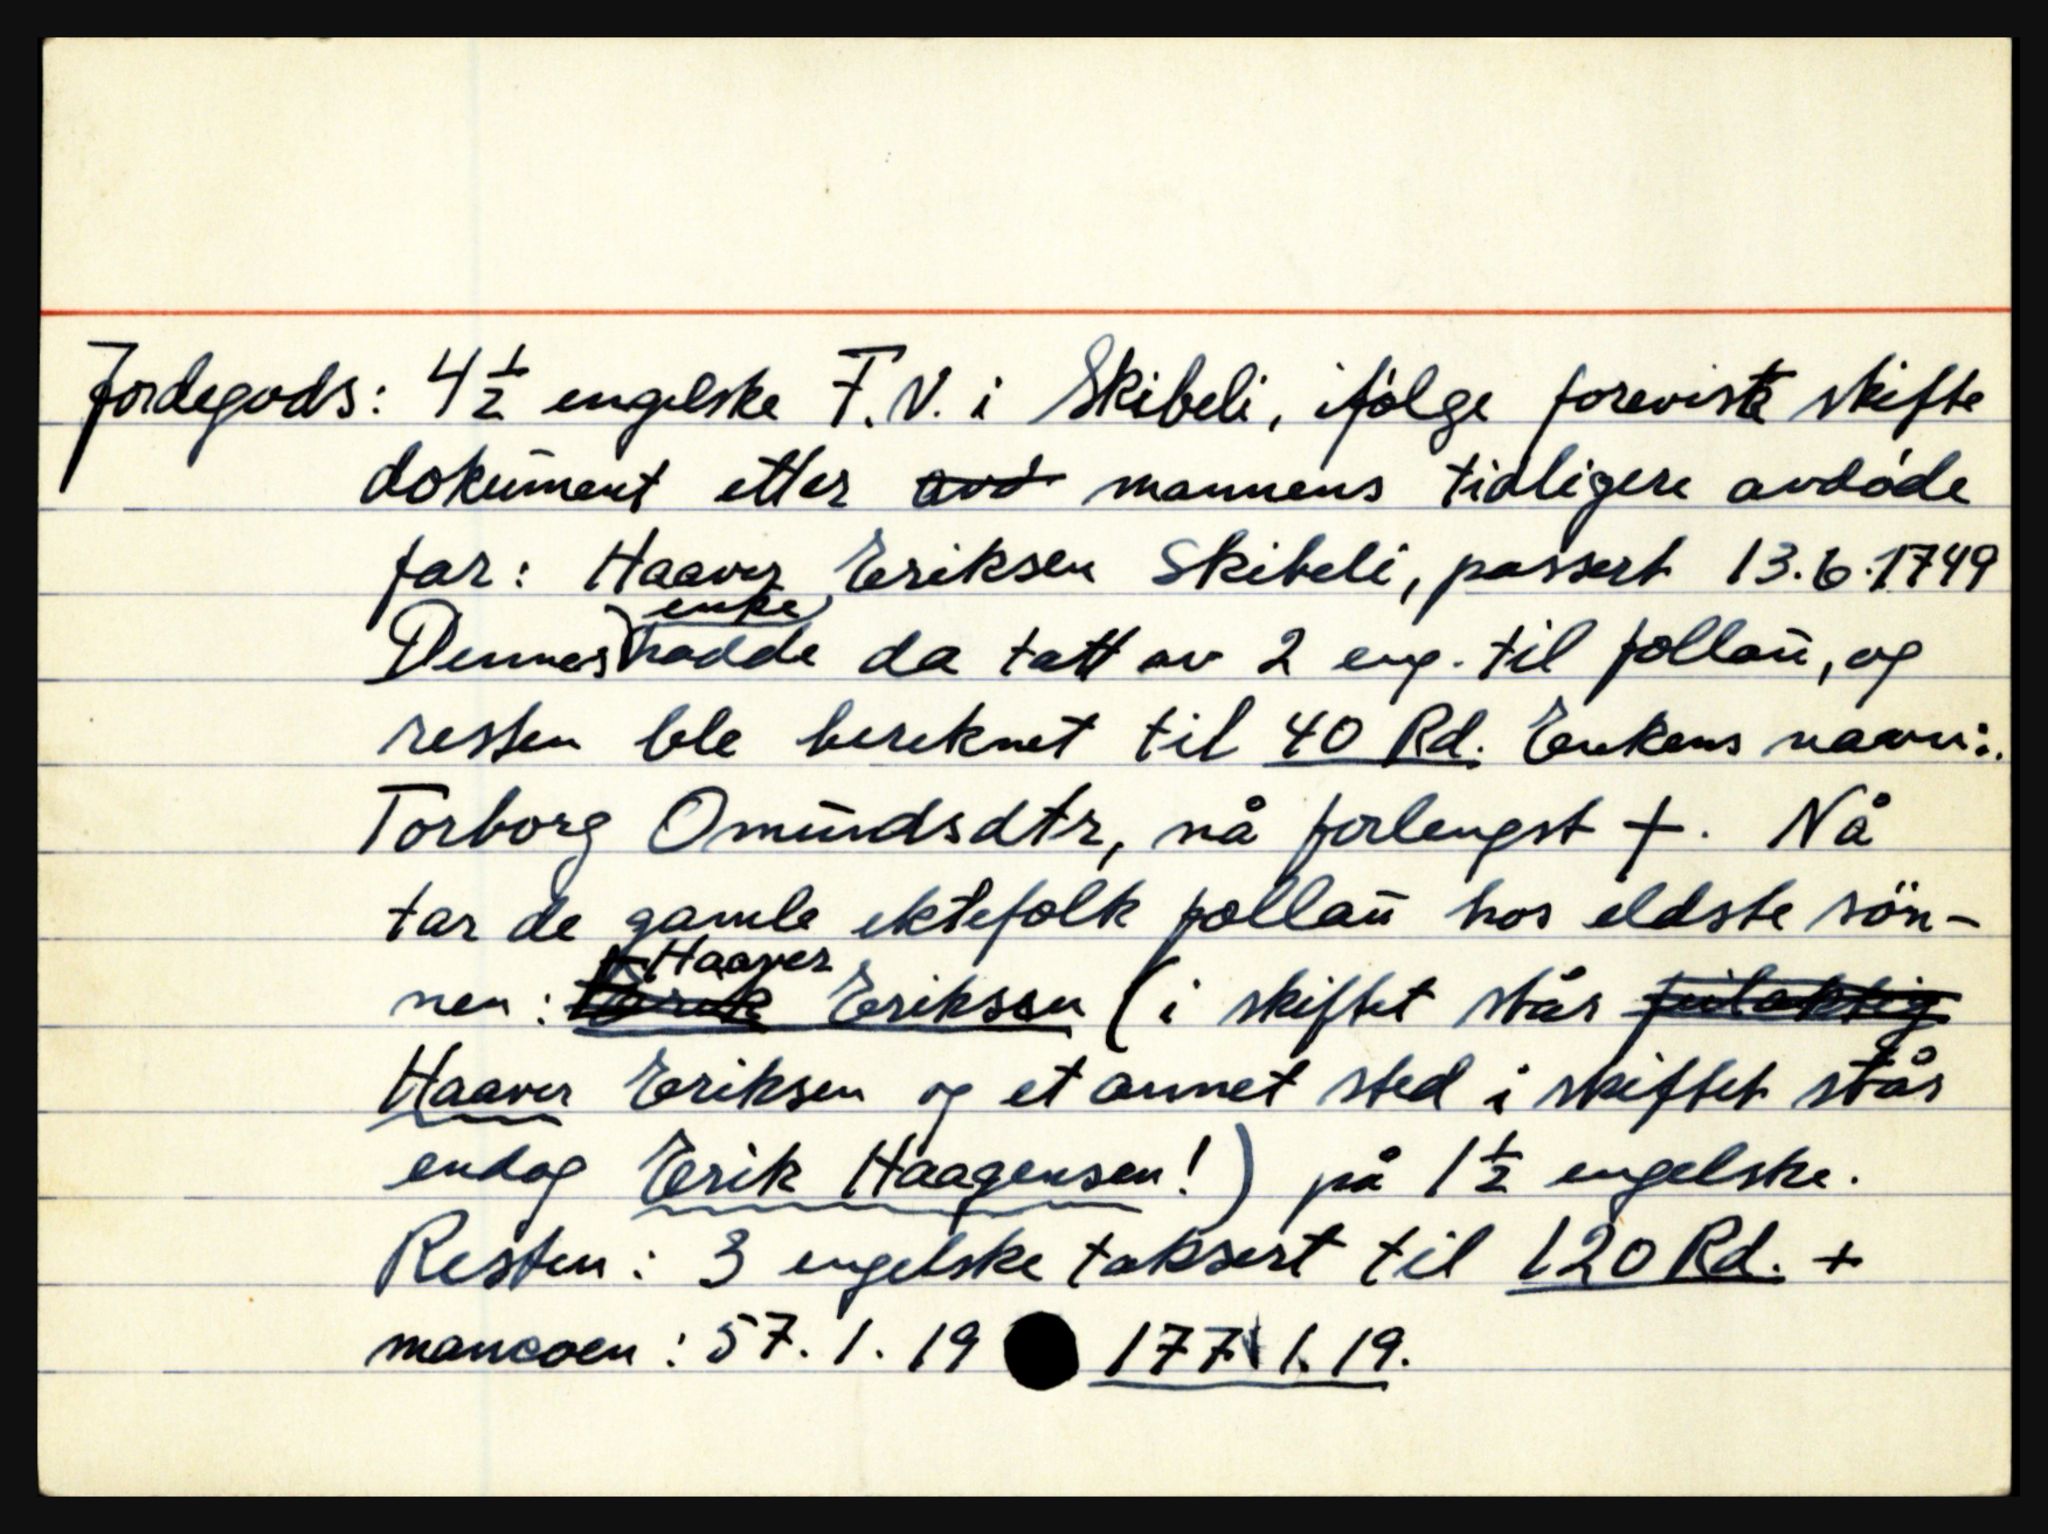 Jordegods: 4½ engelske F.V. i Skibeli, ifølge foreviste skifte
dokument etter avd mannens tidligere avdøde
far: Haaver Eriksen Skibeli, passert 13.6.1749
enke
Dennes hadde da tatt av 2 eng. til føllau, og
resten ble bereknet til 40 Rd. Enkens navn:.
Torborg Omundsdtr, nå forlengst +. Nå
tar de gamle ektefolk føllau hos eldste søn-
Haaver
nen: Erik Eriksen (i skiftet står feilaktig
Haaver Eriksen og et annet sted i skiftet står
endog Erik Haagensen!) på 1½ engelske.
Resten: 3 engelske taksert til 120 Rd. +
mancoen: 57.1.19 177.1.19.